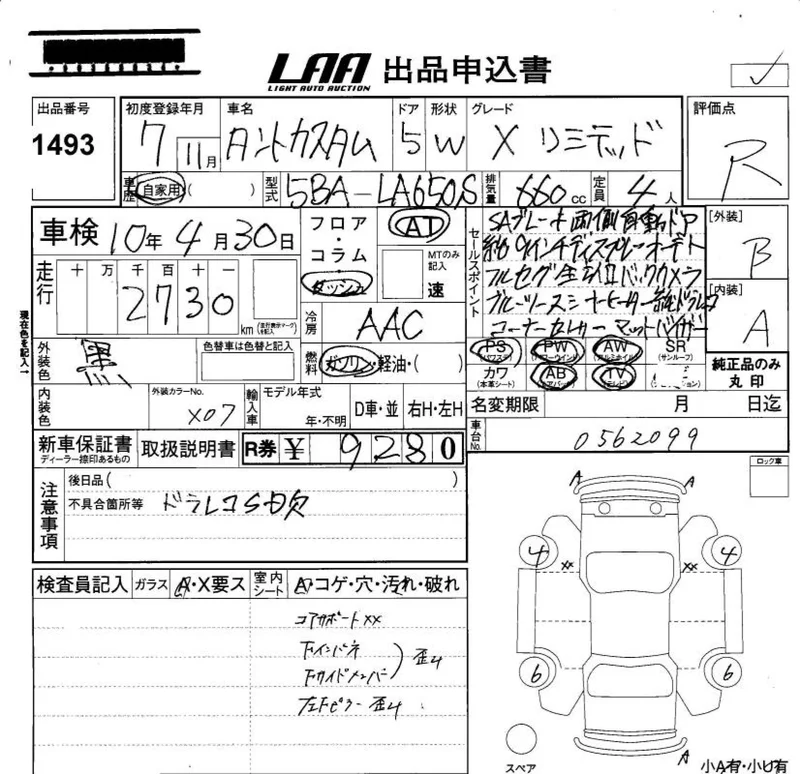 LAA 出品申込書
LIGHT AUTO AUCTION
出品番号 初度登録年月 車名 ドア 形状 グレード 評価点
1493 7 11月 タントカスタム 5 W X リミテッド R
車歴 自家用( ) 型式 5BA-LA650S 排気量 660cc 定員 4人
車検 10年4月30日
フロア・コラム・ダッシュ
AT
MTのみ記入 速
セールスポイント
SAブレーキ 両側自動ドア
純9インチディスプレーオーデト
フルセグ 全方位 バックカメラ
ブルーツース シートヒーター 純ドラレコ
コーナーセンサー マットバイザー
[外装] B
[内装] A
現在色を記入→
走行 十 万 千 百 十 一
2730 km (走行表示マークを記入)
冷房 AAC
燃料 ガソリン・軽油・( )
外装色 黒 色替車は色替と記入
PS (パワステ) PW (パワーウインド) AW (アルミホイル) SR (サンルーフ)
カワ (本革シート) AB (エアバック) TV (テレビ)
純正品のみ丸印
内装色 外装カラーNo. X07 輸入車 モデル年式 年・不明 D車・並 右H・左H
名変期限 月 日迄
新車保証書 ディーラー捺印あるもの 取扱説明書 R券 ¥ 9280
車台No. 0562099
ロック車
注意事項 後日品( )
不具合箇所等 ドラレコSD欠
検査員記入 ガラス A・X要ス 室内シート A・コゲ・穴・汚れ・破れ
コアサポートXX
下インパネ
下サイドメンバー
歪み
フェドピラー 歪み
A A
4 XX XX 4
6 6
スペア A
小A有・小U有